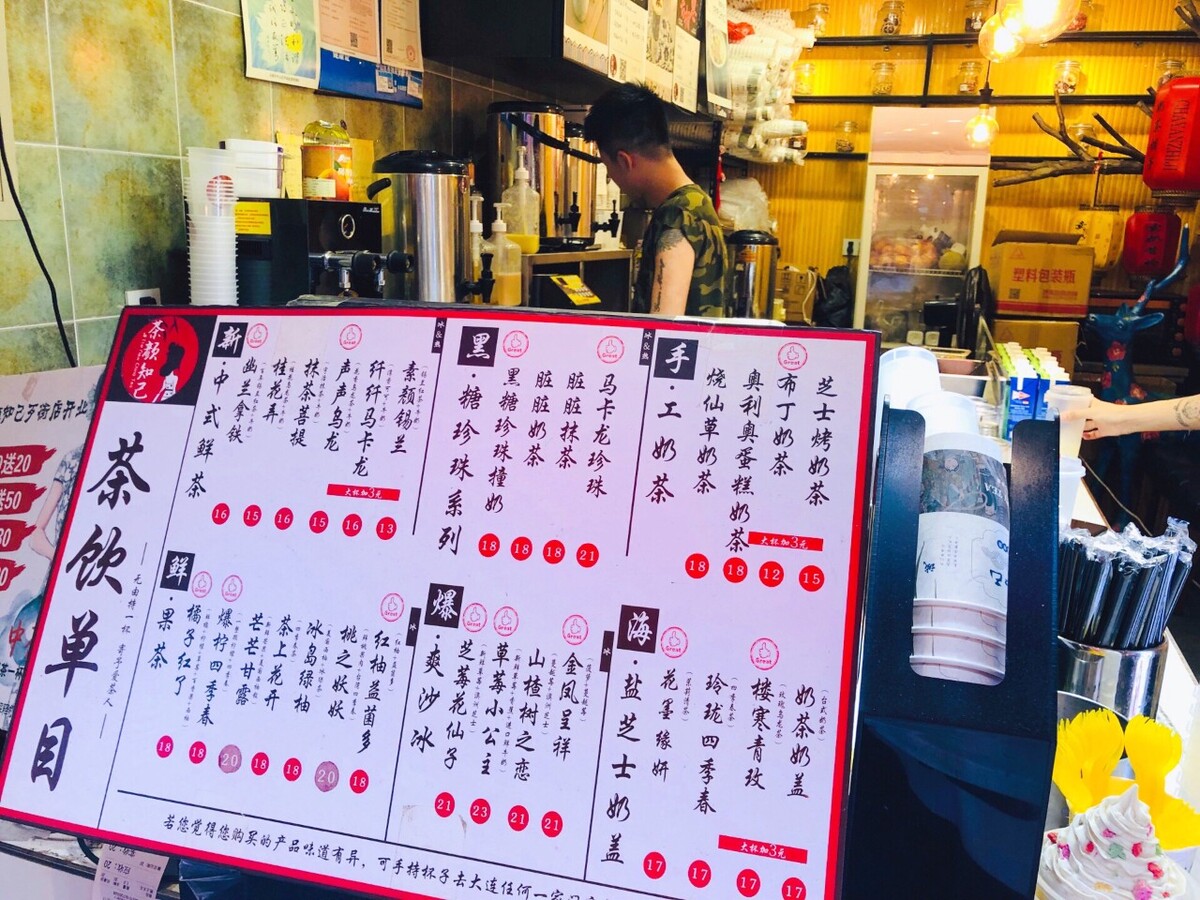 茶颜知己
茶饮单目
无由持一杯 寄予爱茶人
新·中式鲜茶
幽兰拿铁
桂花弄
抹茶菩提
声声乌龙
纤纤马卡龙
素颜锡兰
大杯加3元
16
15
16
15
16
13
冰&热
黑·糖珍珠系列
黑糖珍珠撞奶
脏脏奶茶
脏脏抹茶
马卡龙珍珠
18
18
18
21
冰&热
手·工奶茶
烧仙草奶茶
奥利奥蛋糕奶茶
布丁奶茶
芝士烤奶茶
大杯加3元
18
18
12
15
鲜·果茶
橘子红了
爆柠四季春
芒芒甘露
茶上花开
冰岛绿柚
桃之妖妖
红柚益菌多
18
18
20
18
18
20
18
冰
爆·爽沙冰
芝莓花仙子
草莓小公主
山楂树之恋
金凤呈祥
21
23
21
21
冰
海·盐芝士奶盖
花墨缘妍
(茉莉清茶)
玲珑四季春
(四季春茶)
楼寒青玫
(玫瑰乌龙茶)
奶茶奶盖
(台式奶茶)
大杯加3元
17
17
17
17
Great
若您觉得您购买的产品味道有异，可手持杯子去大连任何一家
塑料包装瓶
送20
送50